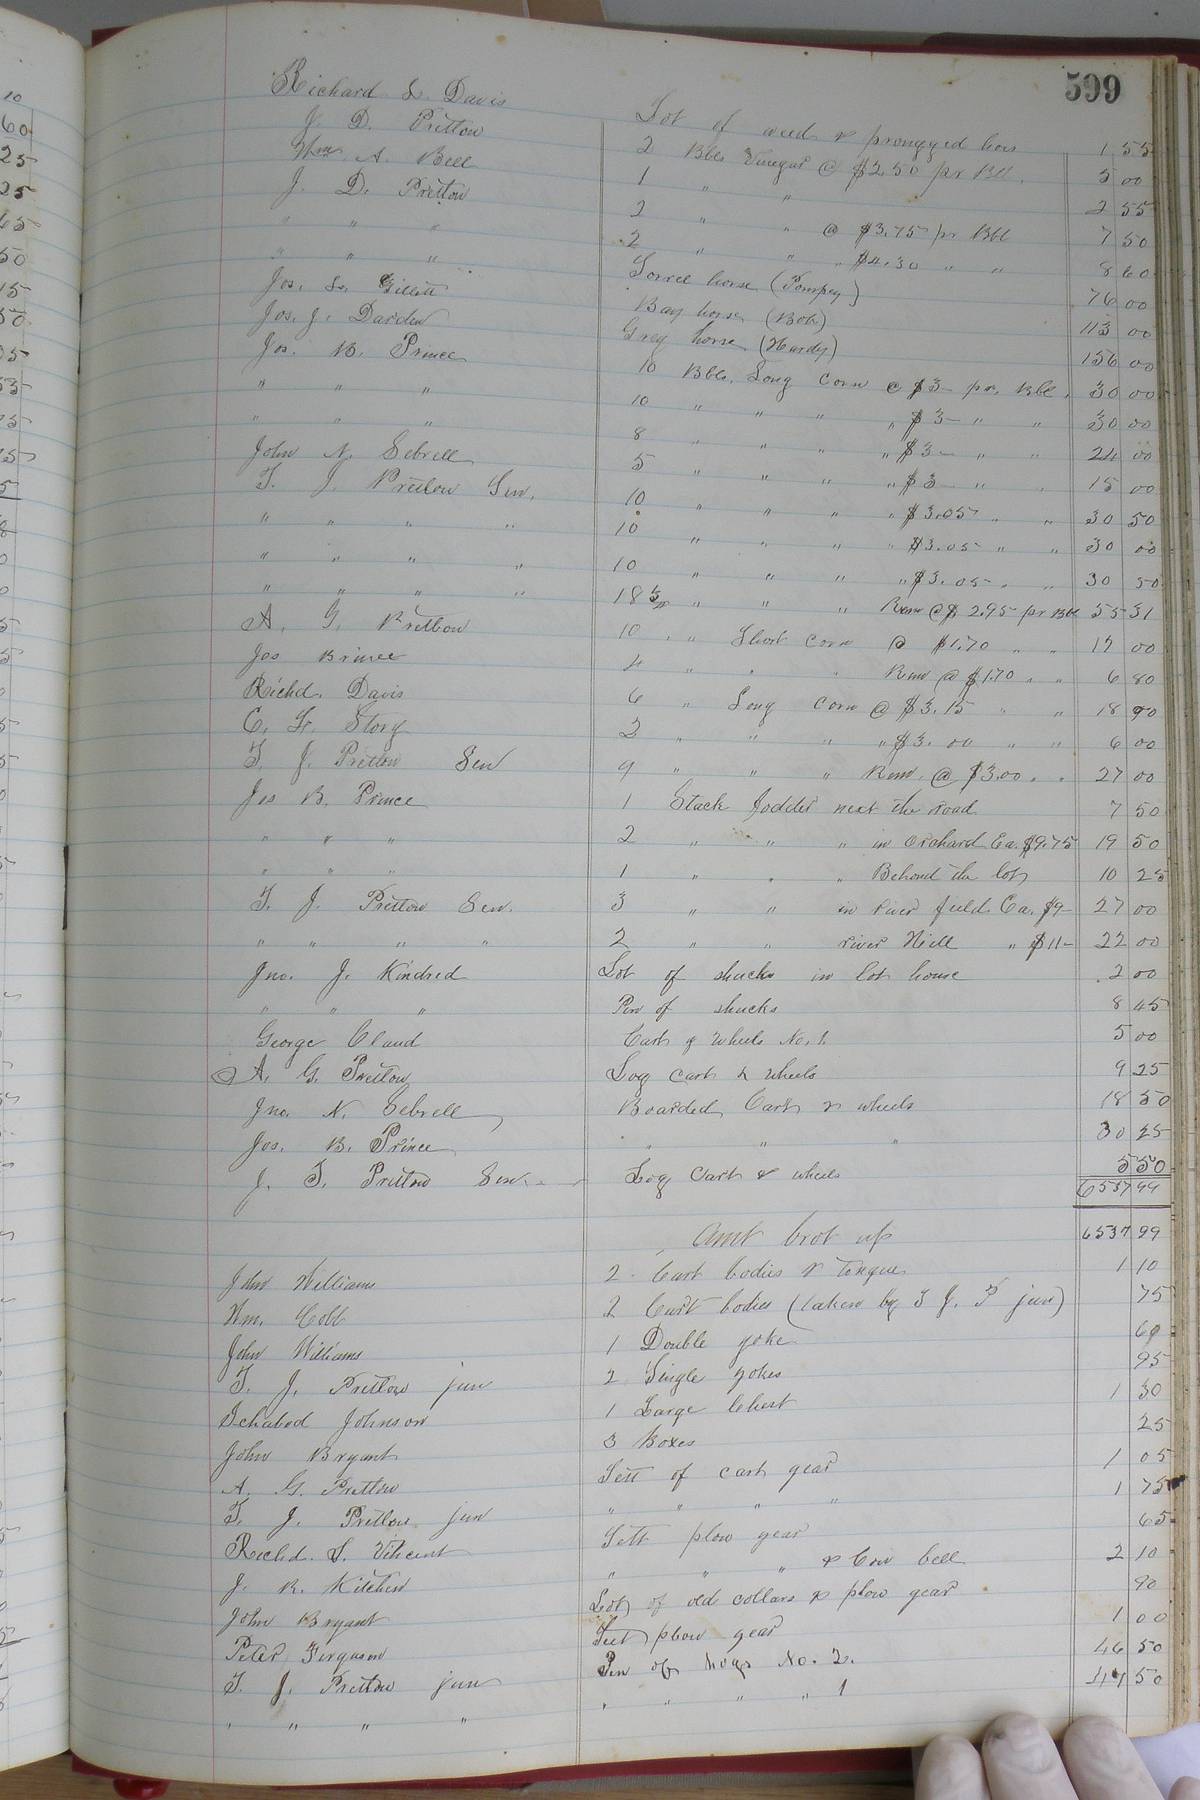 599
Richard S. Davis Lot of weed & prongged hoes 1 55
J. D. Pretlow 2 Bbls Vinegar @ $2.50 pr Bbl. 5 00
Wm. A. Bell 1 " " 2 55
J. D. Pretlow 2 " " @ $3.75 pr Bbl 7 50
" " " 2 " " " $4.30 " " 8 60
" " " Sorrel horse (Pompey) 76 00
Jos. S. Gillett Bay horse (Bob) 113 00
Jos. J. Darden Grey horse (Hardy) 156 00
Jos. B. Prince 10 Bbls. Long corn @ $3- pr. Bbl. 30 00
" " " 10 " " " " $3- " " 30 00
" " " 8 " " " " $3- " " 24 00
John N. Sebrell 5 " " " " $3- " " 15 00
T. J. Pretlow Sen. 10 " " " " $3.05 " " 30 50
" " " " 10 " " " " $3.05 " " 30 00
" " " " 10 " " " " $3.05 " " 30 50
" " " " 18 " " " Rem @ $2.95 pr Bbl 55 31
A. G. Pretlow 10 " " Short corn @ $1.70 " " 17 00
Jos Prince 4 " " " Rem @ $1.70 " " 6 80
Richd. Davis 6 " Long corn @ $3.15 " " 18 90
C. Story 2 " " " " $3.00 " " 6 00
T. J. Pretlow Sen 9 " " " Rem. @ $3.00 " " 27 00
Jos B. Prince 1 Stack fodder next the road 7 50
" " " 2 " " " in orchard Ea. $9.75 19 50
" " " 1 " " " Behond the lot 10 25
T. J. Pretlow Sen. 3 " " in river field Ea. $9- 27 00
" " " " 2 " " river Hill " $11- 22 00
Jno. J. Kindred Lot of shucks in lot house 2 00
" " " Pen of shucks 8 45
George Claud Cart & Wheels No. 1. 5 00
A. G. Pretlow Log cart & wheels 9 25
Jno. N. Sebrell Boarded Cart & wheels 18 50
Jos. B. Prince " " " 30 25
J. T. Pretlow Sen. Log Cart & wheels 5 50
6537 99
Amt brot up 6537 99
John Williams 2 Cart bodies & tongue 1 10
Wm. Cobb 2 Cart bodies (taken by T J. P jun) 75
John Williams 1 Double yoke 60
T. J. Pretlow jun 2 Single yokes 95
Ichabod Johnson 1 Large Chest 1 30
John Bryant 3 Boxes 25
A. G. Pretlow Sett of cart gear 1 05
T. J. Pretlow jun " " " " 1 75
Richd. S. Vincent Sett plow gear 65
J. R. Kitchen " " " & Cow bell 2 10
John Bryant Lot of old collars & plow gear 90
Peter Ferguson Sett plow gear 1 00
T. J. Pretlow jun Pen of hogs No. 2. 46 50
" " " " " " " " 1 44 50